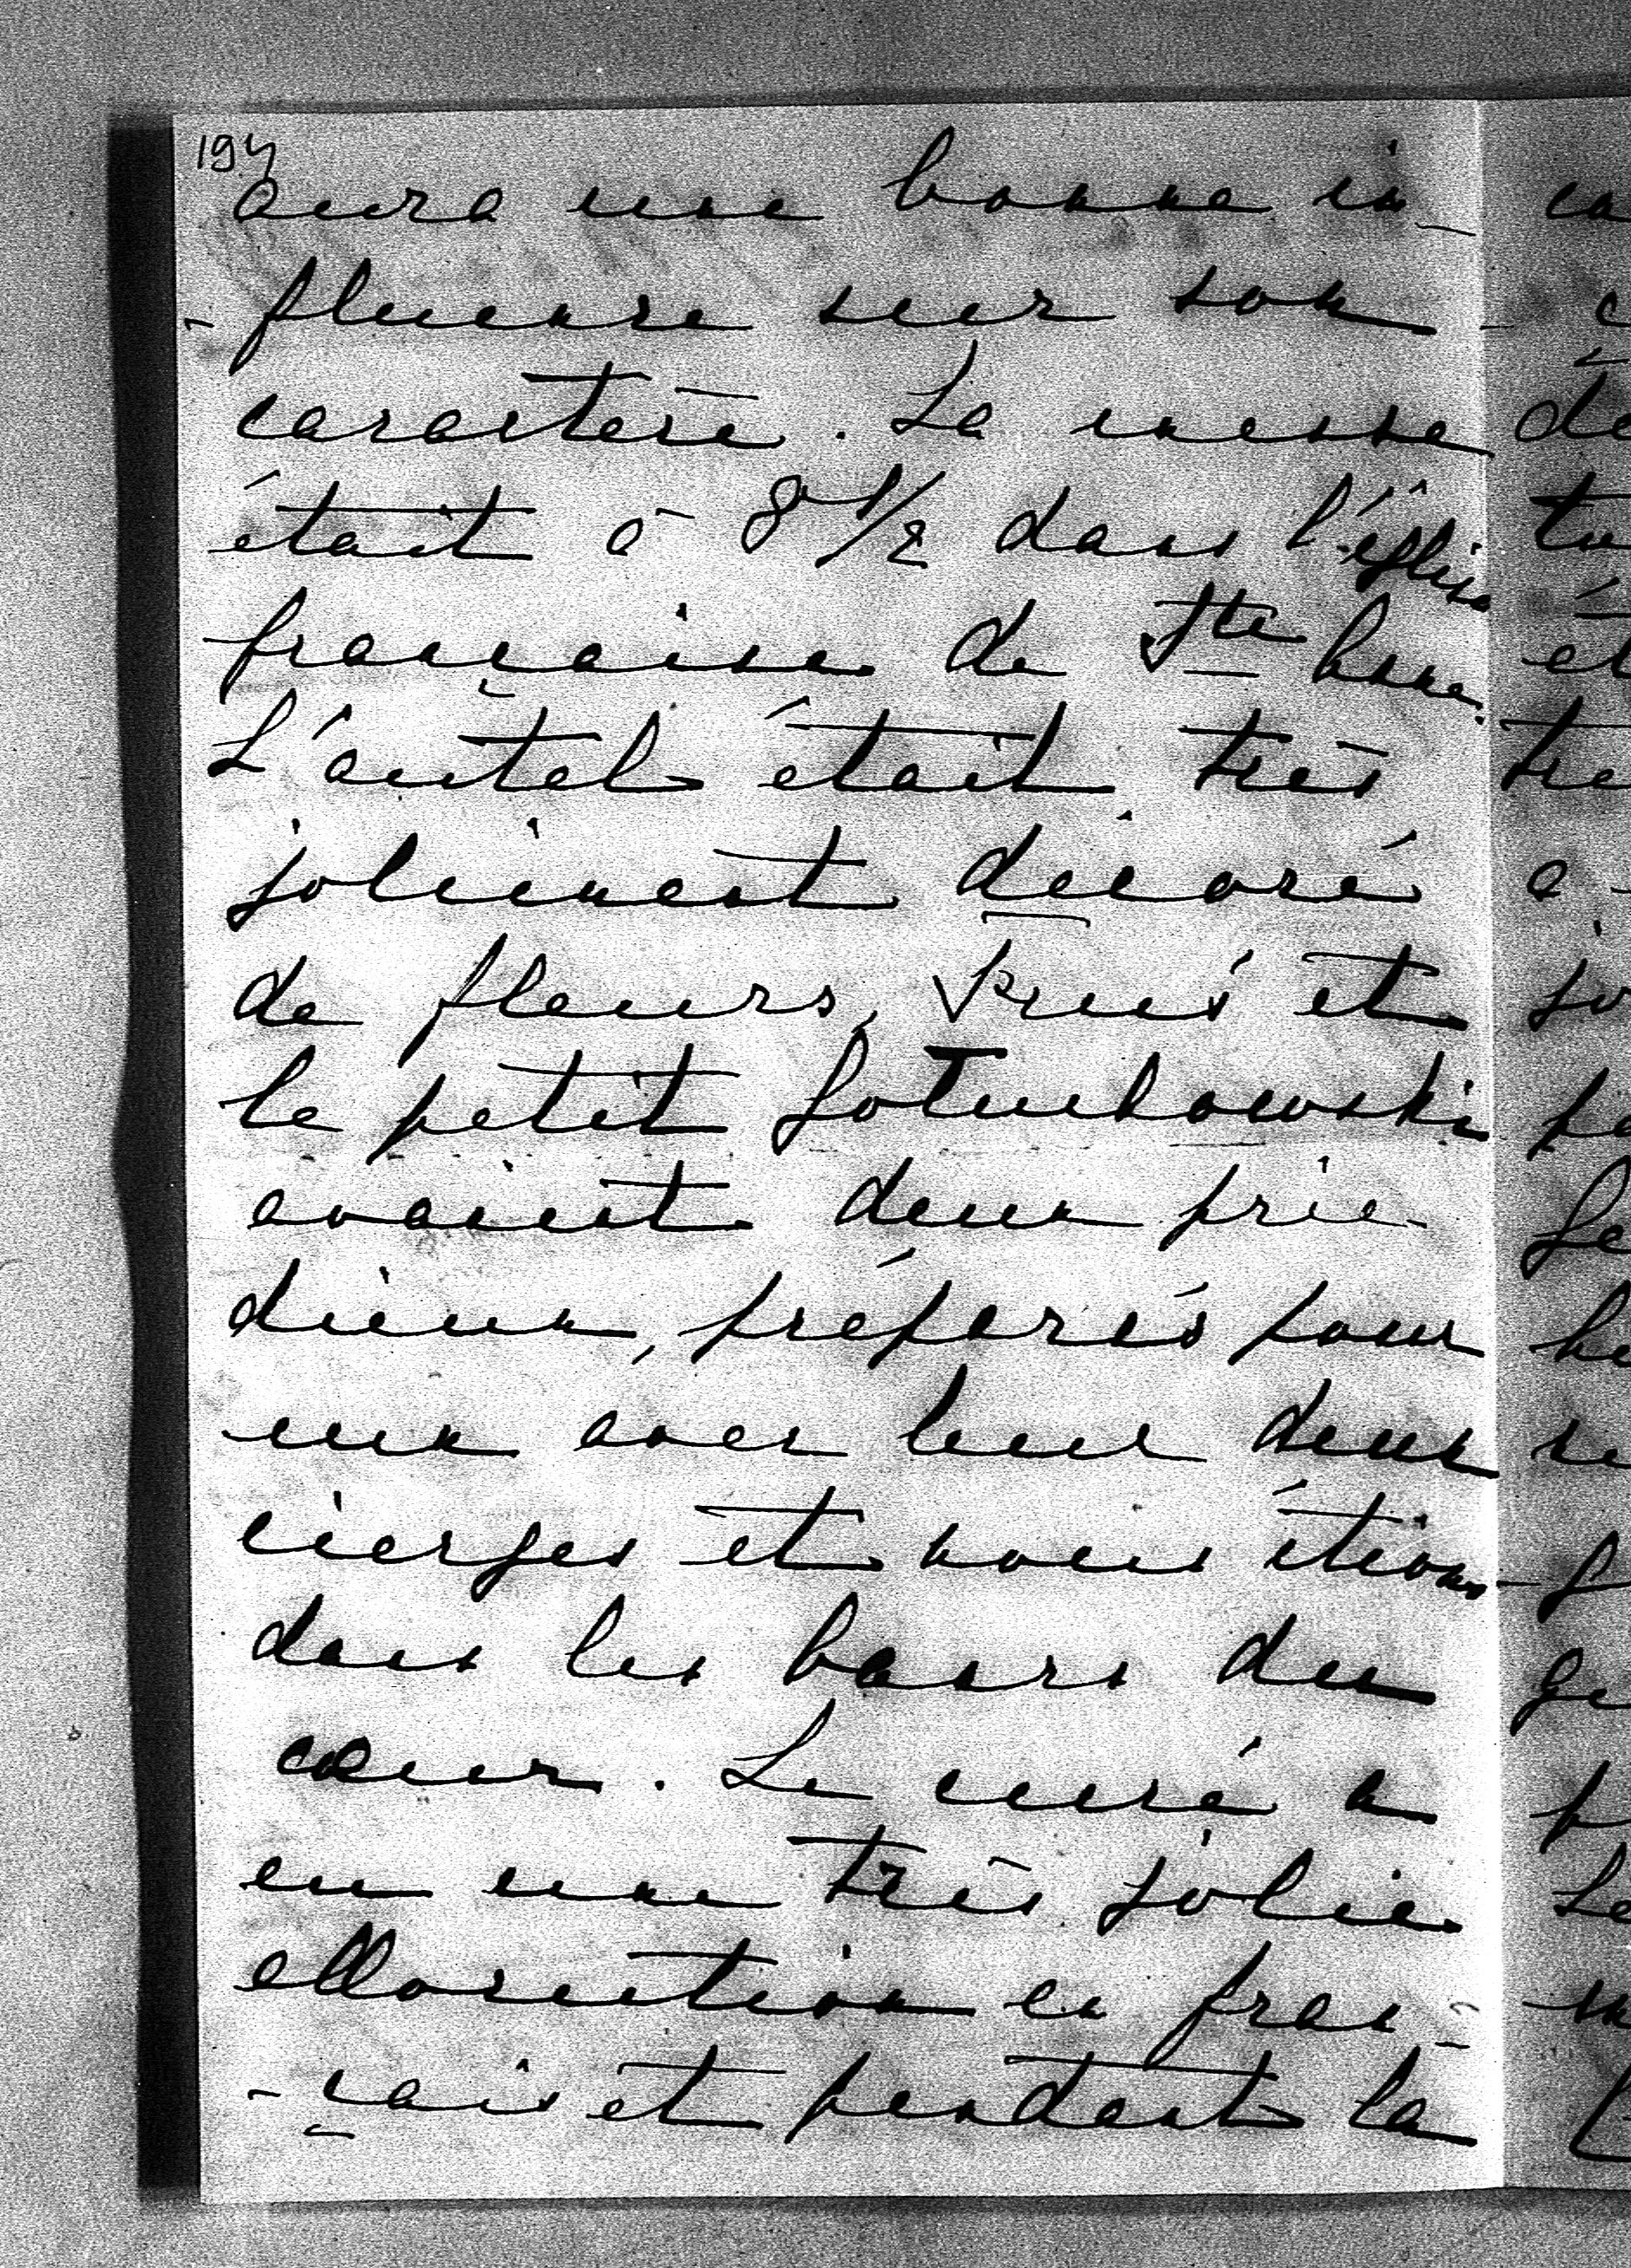 194
aura une bonne in-
-fluence sur son
caractère. La messe
était à 8 1/2 dans l'église
française de Ste Anne.
L'autel était très
joliment décoré
de fleurs, et
le petit Gołuchowski
avaient deux prie-
dieux, préparés pour
eux avec leur deux
cierges et nous étions
dans les bancs du
cœur. Le curé a
eu une très jolie
ellocution en fran-
-çais et pendant la